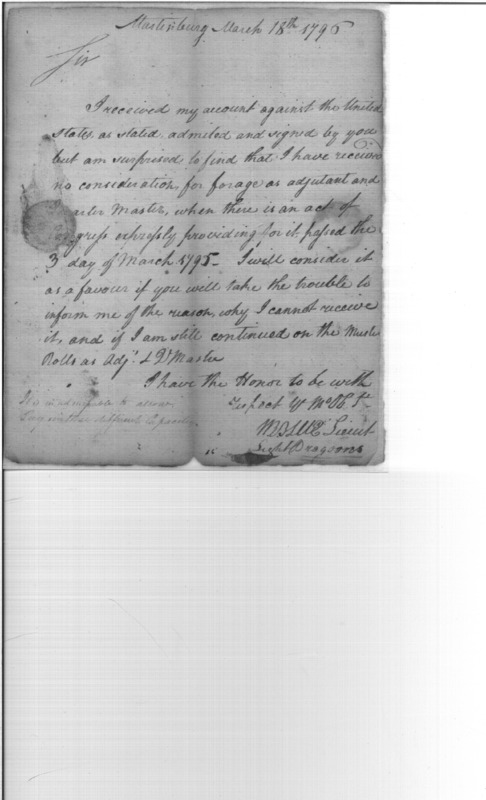 Martinsburg March 18th 1796
Sir
I received my account against the United
States as stated admited and signed by you
but am surprised to find that I have receiv
no consideration for forage as adjutant and
arter Master, when there is an act of
ngress expressly providing for it, passed the
3 day of March 1795 - I will consider it
as a favour if you will take the trouble to
inform me of the reason, why I cannot receive
it, and if I am still continued on the Muster
Rolls as Adjt. & Qr Master
I have the Honor to be with
respect Yr Mo Ob St.
Lieut
Light Dragoons
It is inadmissible to allow